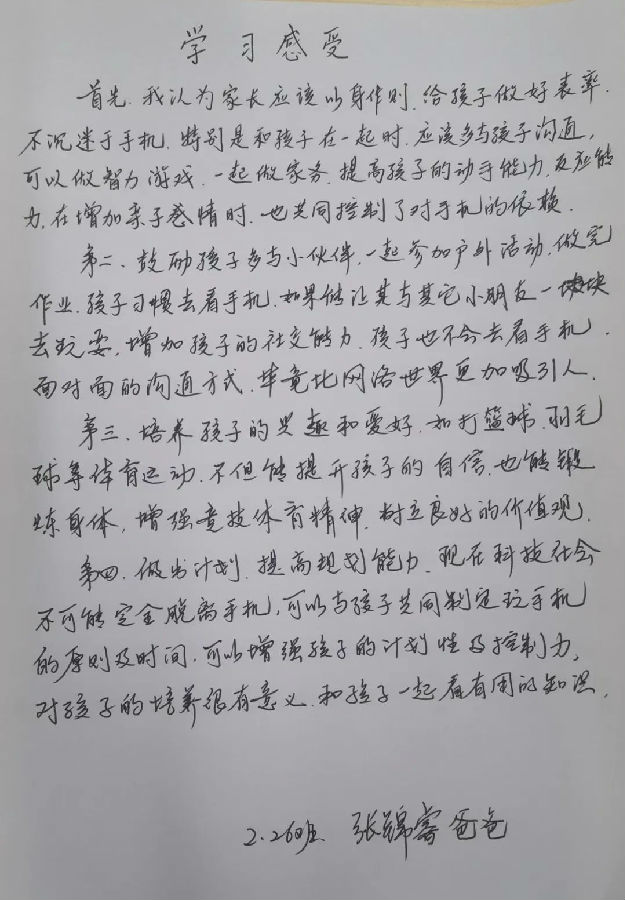 学习感受
首先.我认为家长应该以身作则.给孩子做好表率.
不沉迷于手机.特别是和孩子在一起时.应该多与孩子沟通,
可以做智力游戏.一起做家务.提高孩子的动手能力.反应能
力.在增加亲子感情时.也共同控制了对手机的依赖.
第二、鼓励孩子多与小伙伴.一起参加户外活动.做完
作业.孩子习惯去看手机.如果能让其与其它小朋友一块
去玩耍,增加孩子的社交能力.孩子也不会去看手机.
面对面的沟通方式.毕竟比网络世界更加吸引人.
第三.培养孩子的兴趣和爱好.如打篮球.羽毛
球等体育运动.不但能提升孩子的自信.也能锻
炼身体,增强竞技体育精神.树立良好的价值观.
第四.做出计划.提高规划能力.现在科技社会
不可能完全脱离手机,可以与孩子共同制定玩手机
的原则及时间.可以增强孩子的计划性及控制力,
对孩子的培养很有意义.和孩子一起看有用的知识.
2.26班 张锦睿爸爸